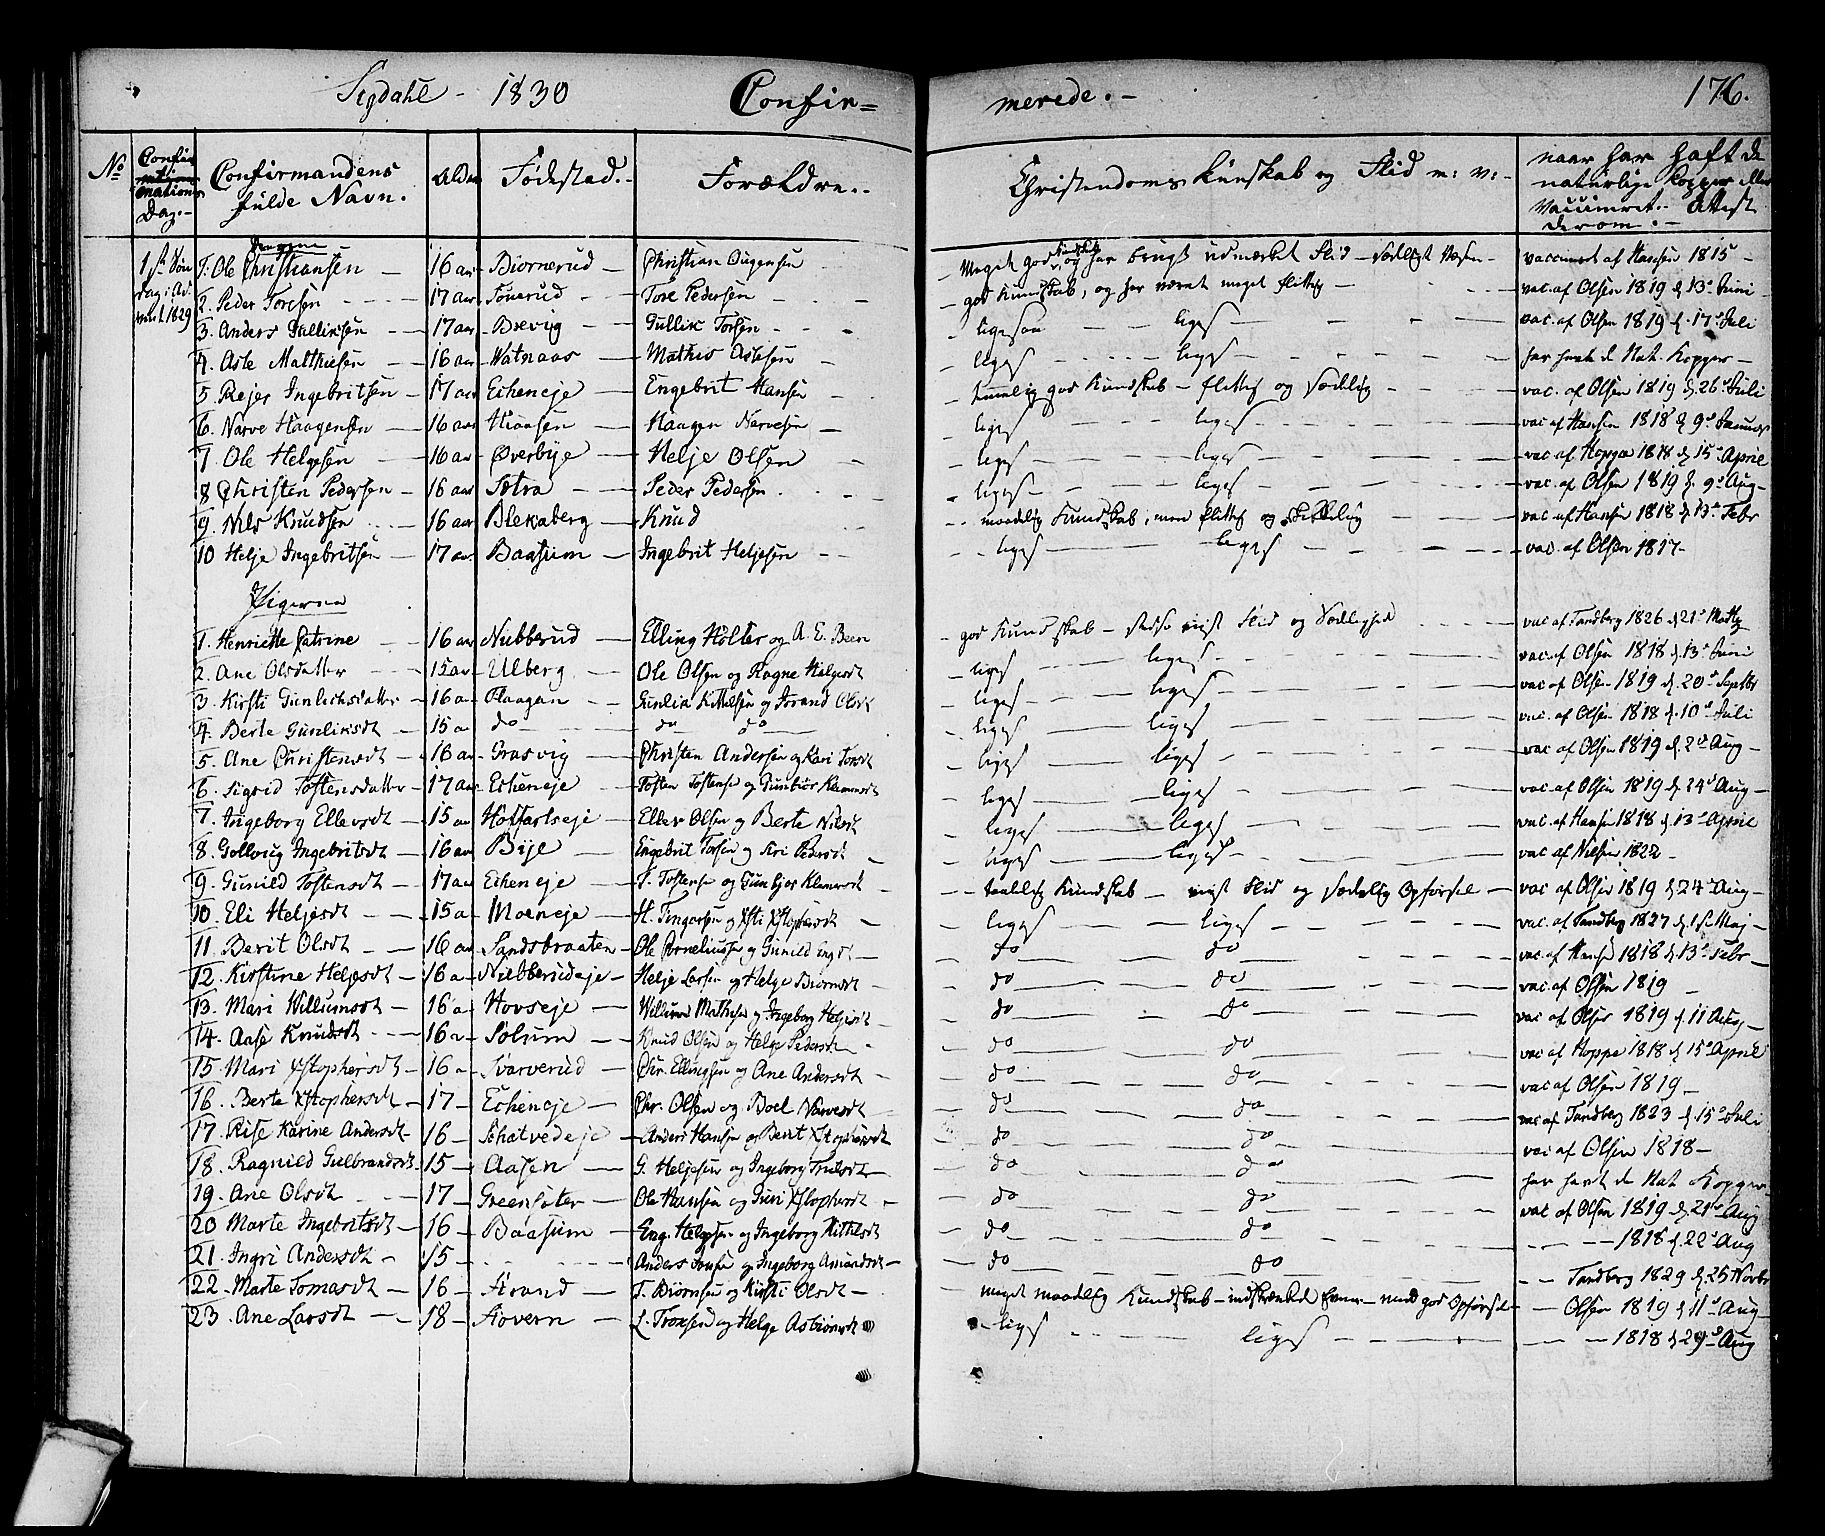 Sigdahl - 1830 Confir= merede. - 176.
No Confirmations Dag.- Confirmandens fulde Navn. Alder Fødestad.- Forældre.- Christendoms Kunskab og Flid m: v:- naar har haft de naturlige Kopper eller Vaccineret.- Attest derom.-
1st Søn dag i Advent 1829
Drengene
1. Ole Christiansen - 16 aar Biørnerud - Christian - Meget god Kundskab og har brugt udmærket Flid - Sædeligt Væsen - vaccineret af Hansen 1815 -
2. Peder Toresen - 17 aar - Tore Pedersen - god Kundskab, og har været meget flittig - vac. af Olsen 1819 d 13de Juni -
3. Anders Gulliksen - 17 aar - Brevig - Gullik Torsen - ligesaa - liges - vac. af Olsen 1819 d. 17de Juli
4. Asle Matthiesen - 16 aar - Watnaas - Mathis Aslesen - liges - liges - har havt d Nat. Kopper -
5. Rejer Ingebritsen - 17 aar Echeneje - Engebrit Hansen - temmelig god Kundskab - flittig og Sædelig - vac. af Olsen 1819 d 26de Juli
6. Narve Haagensen - 16 aar - Haagen Narvesen - liges - liges - vac af Hansen 1818 d 9de Januar
7. Ole Helgesen - 16 aar - Øverbye - Helje Olsen - liges - liges - vac af Hoppe 1818 d 15de April
8 Christen Pedersen - 16 aar Sætra - Peder Pedersen - liges - liges - vac. af Olsen 1819 d. 9de Aug -
9. Nils Knudsen - 16 aar Blekaberg - Knud - maadelig Kundskab, men flittig og skikkelig - vac af Hansen 1818 d 13de Febr
10 Helje Ingebritsen - 17 aar Baasum - Ingebrit Heljesen - liges - liges - vac. af Olsen 1817 -
Pigerne
1. Henriette Catrine - 16 aar Nubberud - Elling Holter og A. E. Been - god Kundskab - Flid og Sædelighed - vac af Tandberg 1826 d 21de
2. Ane Olsdatter - 15 aar - Ulberg - Ole Olsen og Ragne Helgesdt - liges - liges - vac. af Olsen 1818 d 13de Juni
3. Kirsti Gunlichsdatter - 16 a - Haagan - Gunlik Kittilsen og Jorand Olsdt - liges - liges - vac af Olsen 1819 d. 20de Septbr
4. Berte Gunliksdt - 15 a - do - do do - liges - liges - vac. af Olsen 1818 d. 10de Juli
5. Ane Christensdt - 16 aar - Grasvig - Christen Andersen og Kari Torsdt - liges - liges - vac af Olsen 1819 d. 2de Aug -
6. Sigrid Tostensdatter - 17 aar Echeneje - Tosten Tostensen og Gunbior Klemmesdt - liges - liges - vac. af Olsen 1819 d 24de Aug -
7. Ingeborg Ellevsdt - 15 aar - Hoffartseje - Ellev Olsen og Berte Nilsdt - liges - liges - vac. af Hansen 1818 d 13de April
8. Gollaug Ingebritsdt - 16 aar Bije - Engebrit Torsen og Siri Pedersdt - liges - liges - vac af Nilsen 1822 -
9. Gunild Tostensdt - 17 aar Echeneje - T. Tostensen og Gunbjor Klemmesdt - taalelig Kundskab - viist Flid og Sædelig Opførsel - vac af Olsen 1819 d 24de Aug -
10. Eli Heljesdt - 15 a - Moeneje - H. Tingarsen og Xsti Xstophersdt - liges - liges - vac. af Tandberg 1827 d 1ste Maj -
11. Berit Olsdt - 16 aar - Sandsbraaten - Ole Cornelius og Gunild Engdt - do - do - vac. af Hansen 1818 d 13de Febr -
12. Kirstine Heljesdt - 16 a - Nubberudeje - Helje Larsen og Helge Biørnsdt - do - do - vac. af Olsen 1819 -
13. Mari Willumsdt - 16 a - Hovseje - Willum Mathisen og Ingeborg Heljesdt - do - do - vac af Olsen 1819 d 11 Aug -
14. Aase Knudsdt - 16 a - Solum - Knud Olsen og Helge Pedersdt - do - do - vac af Hoppe 1818 d 15de April
15. Mari Xstophersdt - 16 a - Svarverud - Chr. Ellingsen og Ane Andersdt - do - do - vac af Olsen 1819 -
16. Berte Xstophersdt - 17 - Echeneje - Chr. Olsen og Boel Narvesdt - do - do - vac af Tandberg 1823 d 15de Juli
17. Karine Andersdt - 16 - Schatvedeje - Anders Hansen og Berit Xstophersdt - do - do - vac af Olsen 1818 -
18. Ragnild Gulbrandsdt - 15 - Aasen - G. Heljesen og Ingeborg Truelsdt - do - do - har havt de Nat Kopper -
19. Ane Olsdt - 17 - Greensæter - Ole Hansen og Guri Xstophersdt - do - do - vac af Olsen 1819 d 21de Aug
20 Marte Ingebritsdt - 16 - Baasum - Eng. Helgesen og Ingeborg Kittelsdt - do - do - 1818 d 22de Aug
21. Ingri Andersdt - 15 - Anders og Ingeborg Amundsdt - do - do - Tandberg 1829 d 25 Novbr
22. Marte Tomasdt - 16 - Aarand - T. Biørnsen og Kirsti Olsdt - meget maadelig Kundskab - indskrænkede Evner - med god Opførsel - Olsen 1819 d 11te Aug -
23. Ane Larsdt - 18 - Hovern - L. Tronsen og Helge Asbiørnsdt - liges - liges - 1818 d 29de Aug